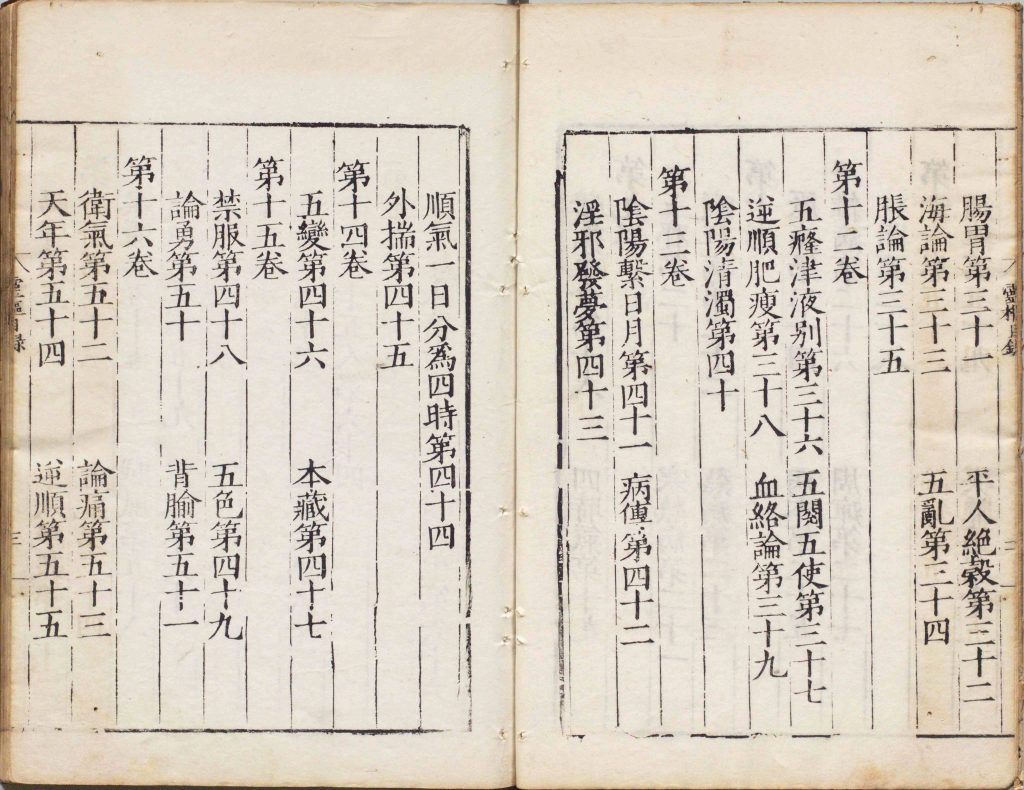 靈樞目錄
二
腸胃第三十一 平人絶穀第三十二
海論第三十三 五亂第三十四
脹論第三十五
第十二卷
五癃津液别第三十六 五閱五使第三十七
逆順肥瘦第三十八 血絡論第三十九
陰陽清濁第四十
第十三卷
陰陽繫日月第四十一 病傳第四十二
淫邪發夢第四十三
順氣一日分為四時第四十四
外揣第四十五
第十四卷
五變第四十六 本藏第四十七
第十五卷
禁服第四十八 五色第四十九
論勇第五十 背腧第五十一
第十六卷
衛氣第五十二 論痛第五十三
天年第五十四 逆順第五十五
靈樞目錄
三